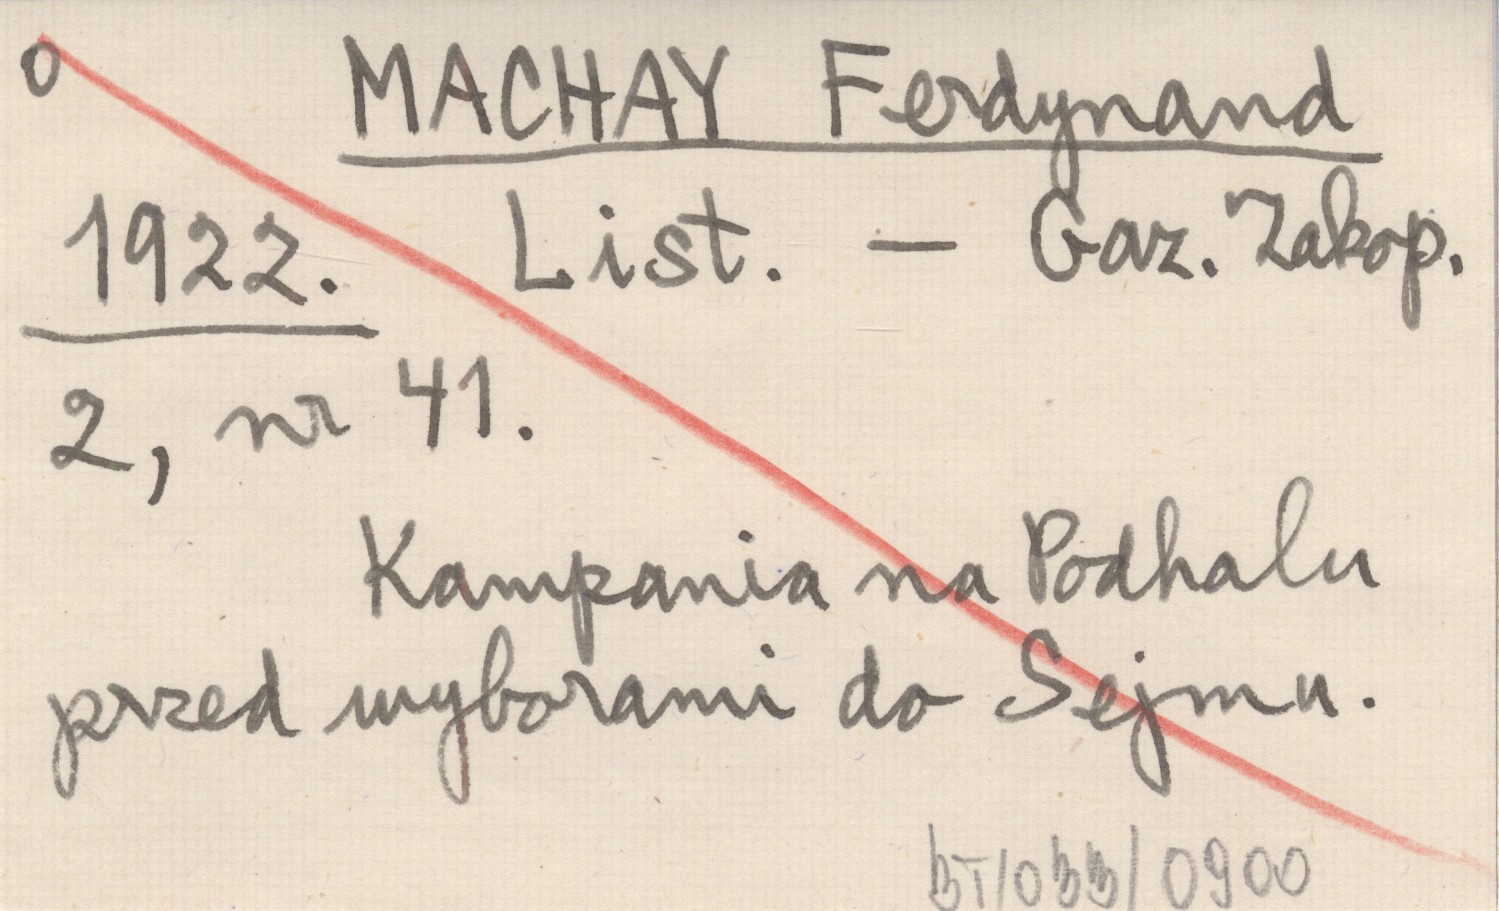 0 MACHAY Ferdynand
1922. List. — Gaz. Zakop.
2, nr 41.
Kampania na Podhalu
przed wyborami do Sejmu.
/0900